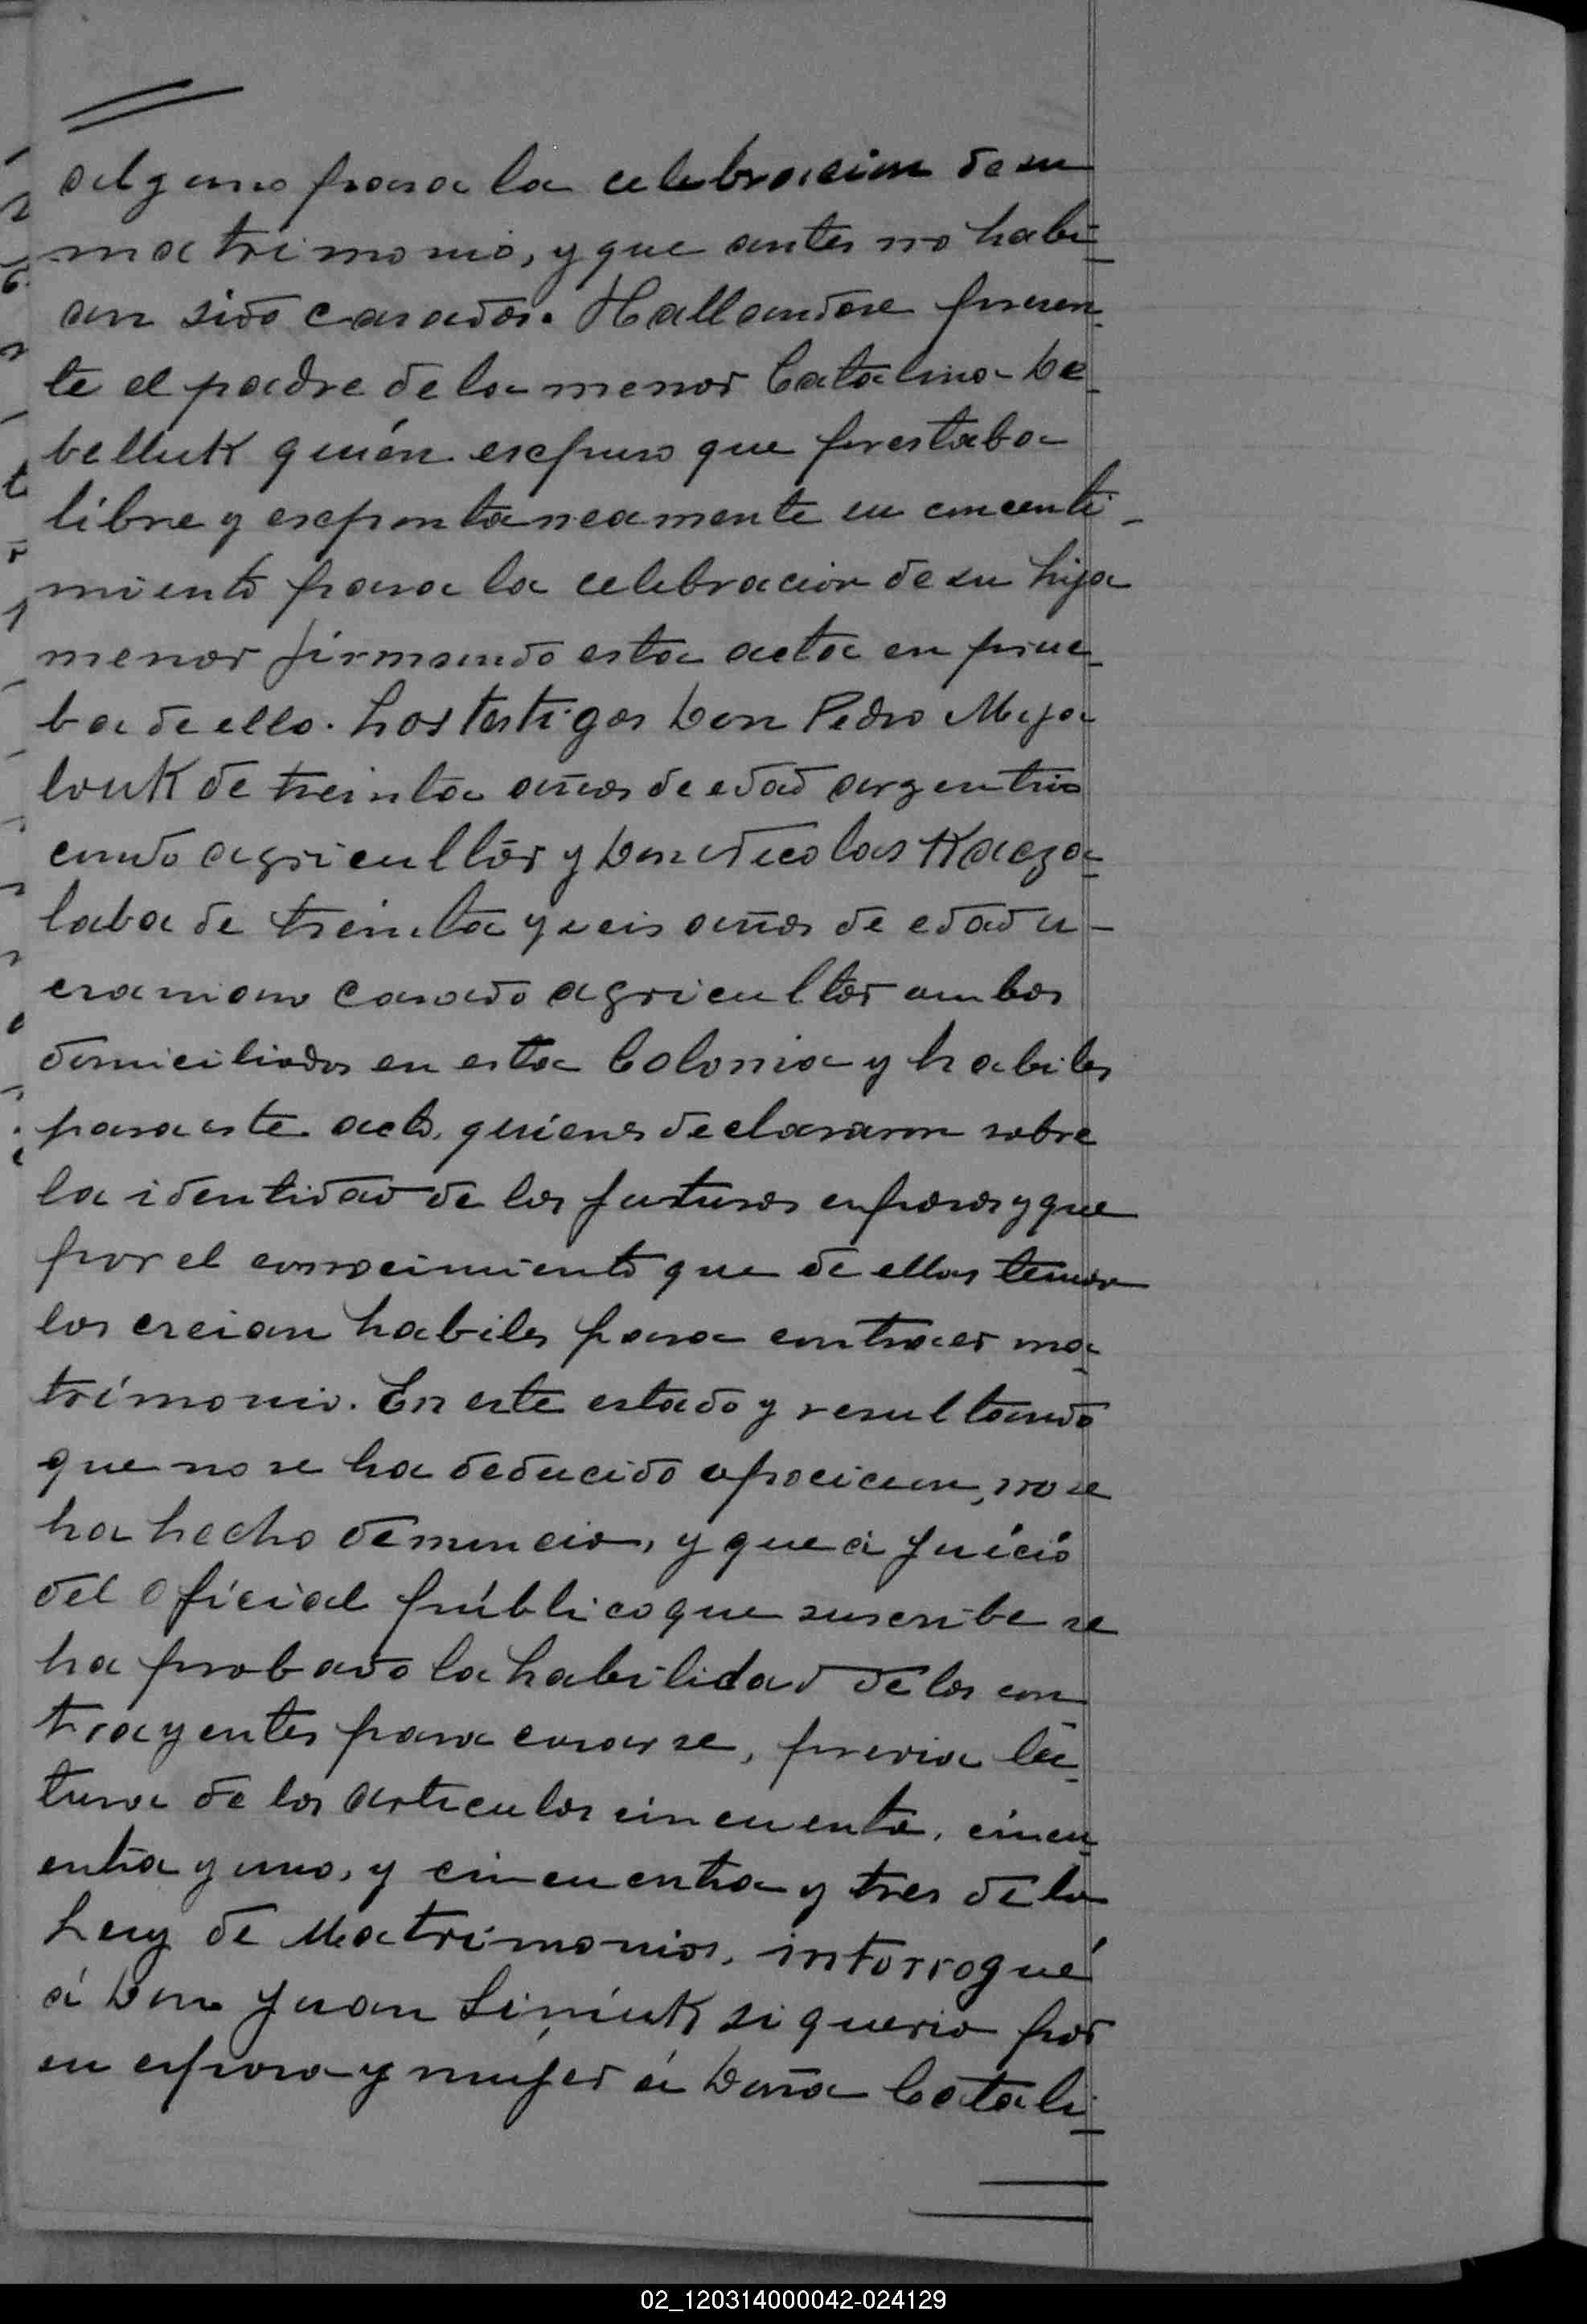 alguno para la celebracion de su
matrimonio, y que antes no habi=
an sido casados. Hallandose presen-
te el padre de la menor Catalina De
belluk quién escpuso que prestaba
libre y escpontaneamente su concenti-
miento para la celebracion de su hija
menor firmando esta acta en prue-
ba de ello. Los testigos Don Pedro Mija
louk de treinta años de edad argentino
agricultór y Don Nicolas Kacza=
laba de treinta y seis años de edad u-
craniano casado agricultor ambos
domiciliados en esta Colonia y habiles
para este acto, quienes declararon sobre
la identidad de los futuros esposos y que
por el conocimiento que de ellos tenian
los creian habiles para contraer ma-
trimonio. En este estado y resultando
que no se ha deducido opocicion, no se
ha hecho denuncia, y que á juicio
del Oficial público que suscribe se
ha probado la habilidad de los con
trayentes para casarse, previa lec-
tura de los articulos cincuenta, cincu-
enta y uno, y cincuenta y tres de la
Ley de Matrimonios, interrogué
á Don Juan Siniuk si queria por
su esposa y mujer á Doña Catali-
02_120314000042-024129